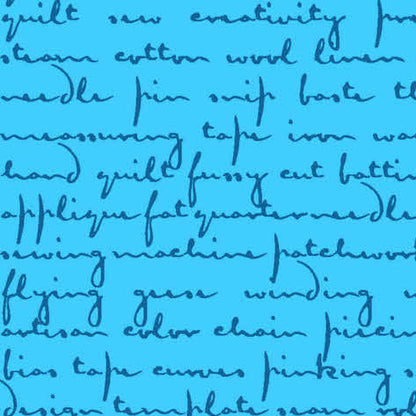 quilt sew creativity pro
steam cotton wool linen
needle pin snip baste th
meassuring tape iron wa
hand quilt fussy cut battin
applique fat quarter needle
sewing machine patchwor
flying geese winding
artisan color chain piecin
bias tape curves pinking s
design template seam